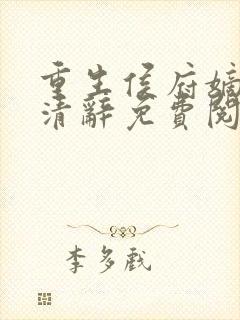 重生侯府嫡
清辭免費閱
李多戲